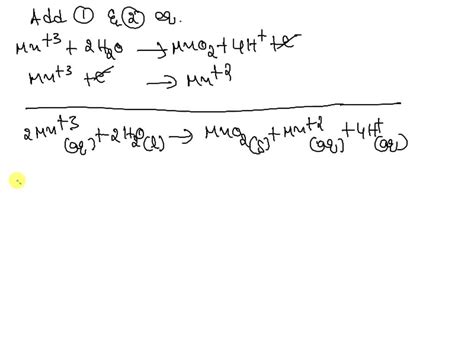 Add ① & ② eq.
Mn⁺³ + 2H₂O → MnO₂ + 4H⁺ + e⁻
Mn⁺³ + e⁻ → Mn⁺²
2Mn⁺³(aq) + 2H₂O(l) → MnO₂(s) + Mn⁺²(aq) + 4H⁺(aq)